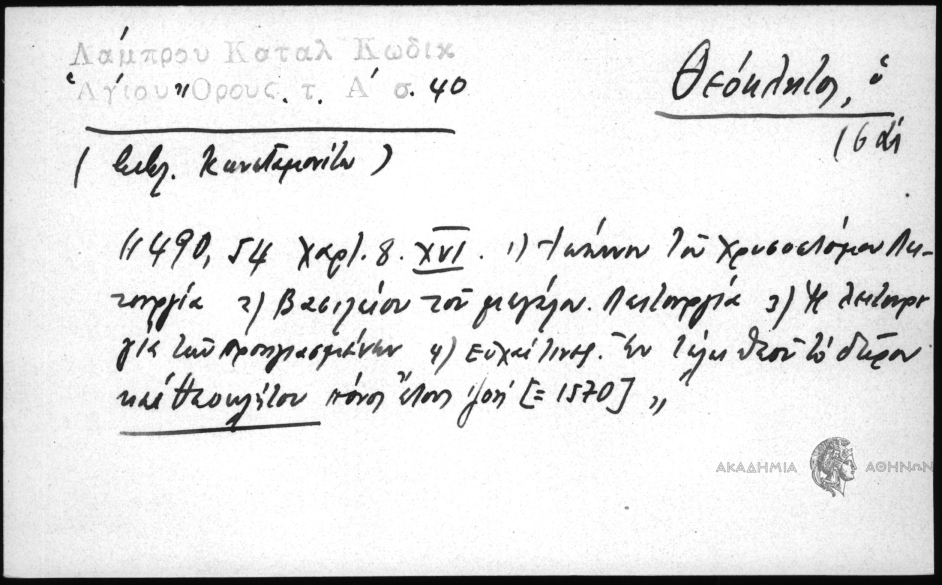 Λάμπρου Καταλ Κωδικ
Ἁγίου Ὄρους τ. Α΄ σ. 40
Θεόκλητος, ὁ
16 αἰ
( Βιβλ. Κωνσταμονίτου )
"490, 54 χαρτ. 8. XVI. 1) Ἰωάννου τοῦ Χρυσοστόμου Λει-
τουργία 2) Βασιλείου τοῦ μεγάλου Λειτουργία 3) Ἡ λειτουρ
γία τῶν προηγιασμένων 4) Εὐχαί τινες. Ἐν τέλει Θεοῦ τὸ δῶρον
καὶ Θεοκλήτου πόνος ἔτους ζοη [= 1570] "
ΑΚΑΔΗΜΙΑ ΑΘΗΝΩΝ